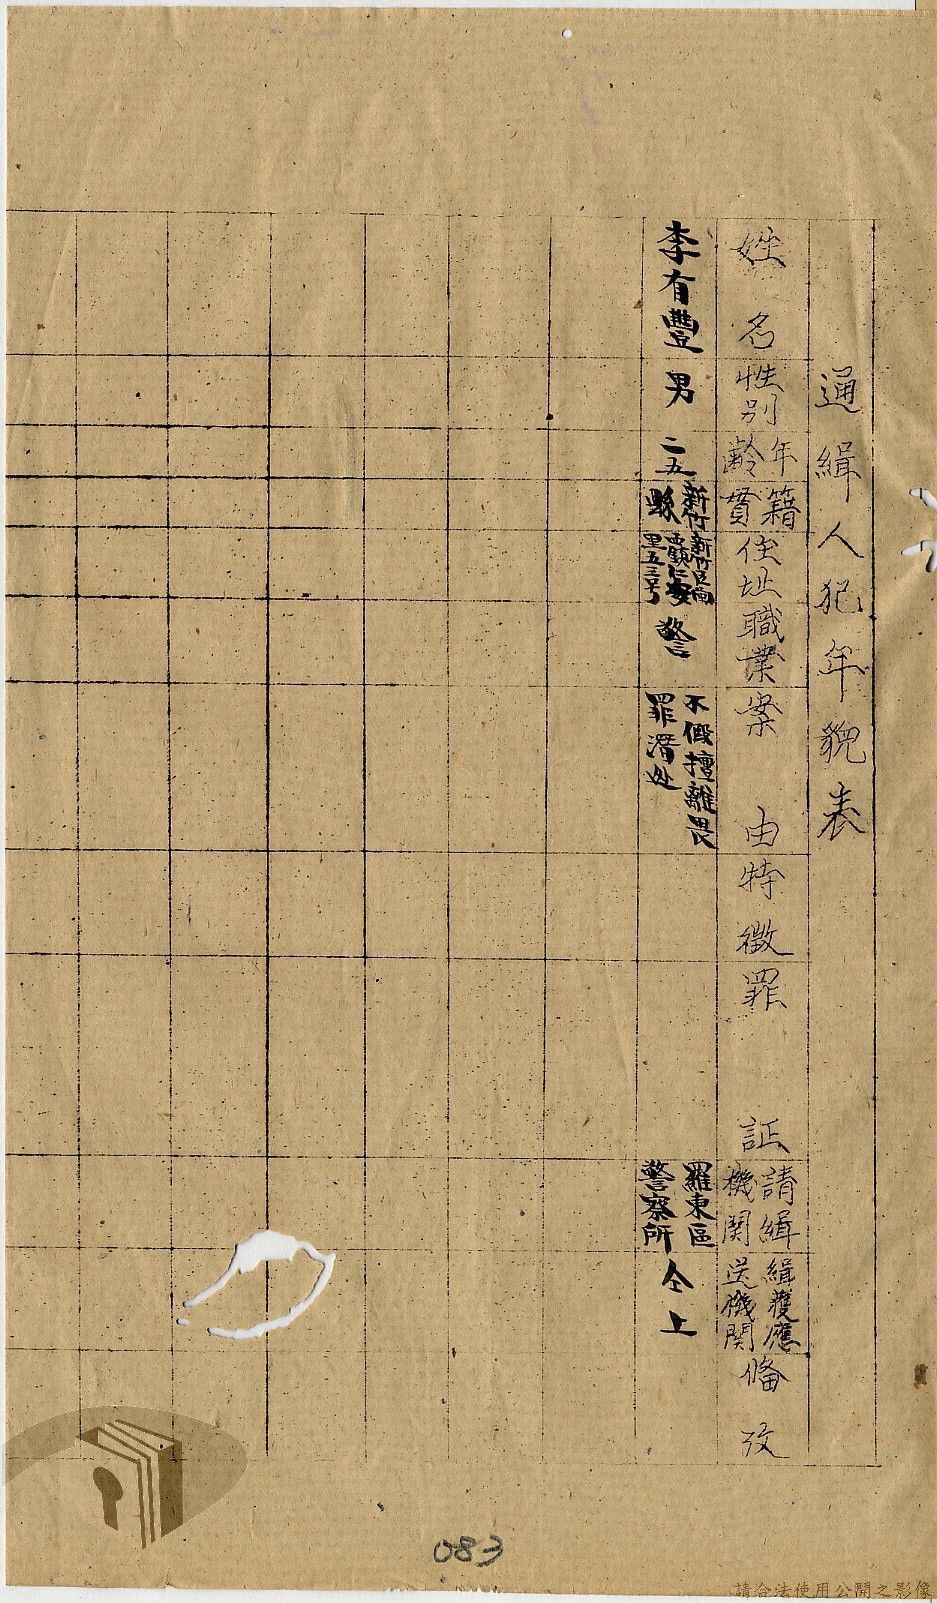 通緝人犯年貌表
姓名
性別
年齡
籍貫
住址
職業
案由
特徵
罪証
請緝機関
緝獲應送機関
俻攷
李有豐
男
二五
新竹縣
新竹区南
西鎮仁安
里五三号
警
不假擅離畏
罪潛处
羅東區
警察所
仝上
083
請合法使用公開之影像